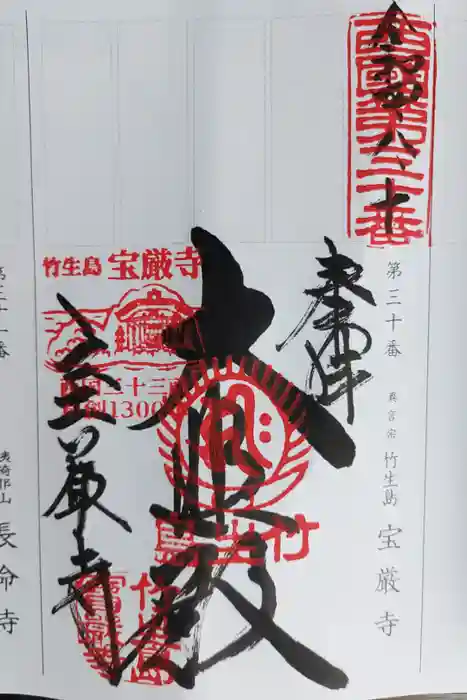 西國第三十番
令和四、八、十
第三十番
真言宗
竹生島
宝厳寺
奉拝
大悲殿
竹生島
竹生島 宝厳寺
西国三十三所
草創1300年
宝厳寺
竹生島
寶嚴寺
第三十一番
姨綺耶山
長命寺